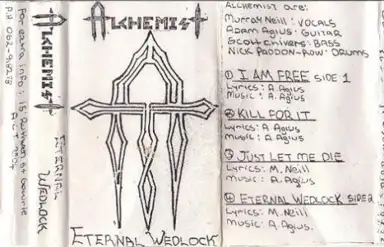 ALCHEMIST
ETERNAL
WEDLOCK
For extra info: 15
PH 062-918278
A.C.T 2904
ALCHEMIST
ETERNAL WEDLOCK
ALCHEMIST are:
Murray Neill: VOCALS
ADAM Agius: GUITAR
Scott Chivers: BASS
NICK PADDON-ROW: DRUMS
1 I AM FREE SIDE 1
Lyrics: A. Agius
Music: A. Agius
2 KILL FOR IT
Lyrics: A. Agius
Music: A. Agius
3 JUST LET ME DIE
Lyrics: M. Neill
Music: A. Agius
4 ETERNAL WEDLOCK SIDE 2
Lyrics: M. Neill
Music: A. Agius.